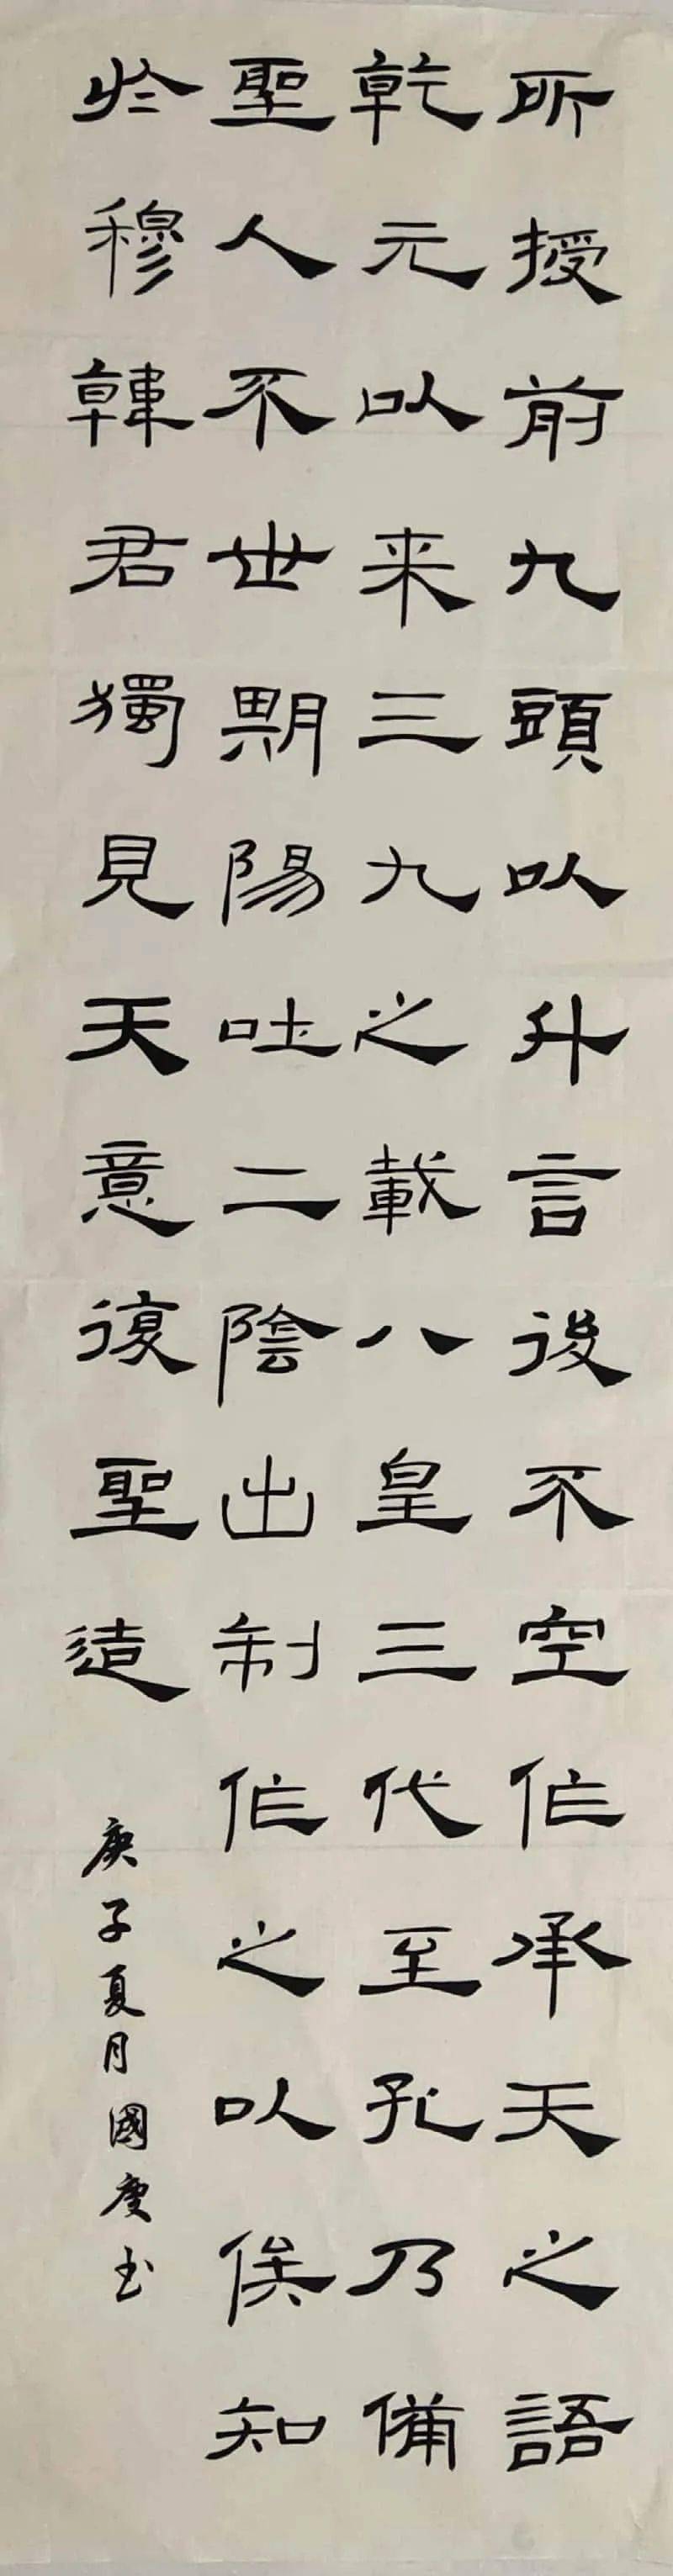 所授前九頭以升言後不空作承天之語
乾元以来三九之載八皇三代至孔乃備
聖人不世期陽吐二陰出制作之以俟知
於穆韓君獨見天意復聖造
庚子夏月國慶书